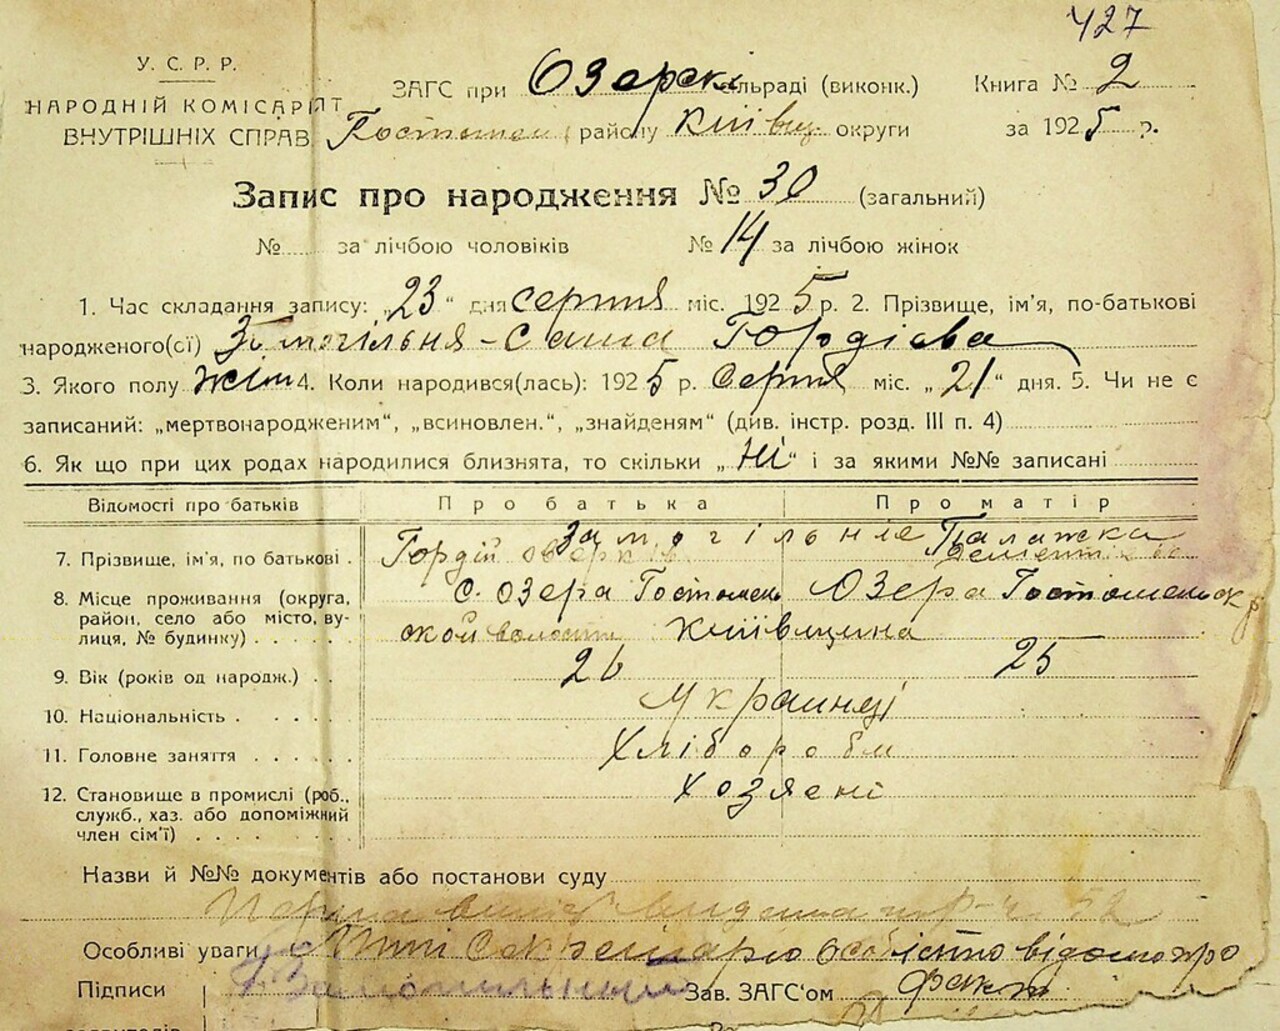 427
У. С. Р. Р.
НАРОДНІЙ КОМІСАРІЯТ
ВНУТРІШНІХ СПРАВ
ЗАГС при Озерскі сільраді (виконк.) Книга № 2
Гостомел району Київщ. округи за 1925 р.
Запис про народження № 30 (загальний)
№ за лічбою чоловіків № 14 за лічбою жінок
1. Час складання запису: „23“ дня серпня міс. 1925 р. 2. Прізвище, ім’я, по-батькові
народженого(ої) Замогільня - Саша Гордієва
3. Якого полу жін 4. Коли народився(лась): 1925 р. Серпня міс. „21“ дня. 5. Чи не є
записаний: „мертвонародженим“, „всиновлен.“, „знайденям“ (див. інстр. розд. III п. 4)
6. Як що при цих родах народилися близнята, то скільки „Ні“ і за якими №№ записані
Відомості про батьків Про батька Про матір
7. Прізвище, ім’я, по батькові Замогільніе
Гордій Оверків Палажка
8. Місце проживання (округа, С. Озера Гостомель Озера Гостомельск р
район, село або місто, ву-
лиця, № будинку) ской волости Київщина
9. Вік (років од народж.) 26 25
10. Національність Украинці
11. Головне заняття Хлібороби
12. Становище в промислі (роб., Хозяені
служб., хаз. або допоміжний
член сім’ї)
Назви й №№ документів або постанови суду
52
Особливі уваги Мні Секретарю особісто відомо про
факт
Підписи Замогильный Зав. ЗАГС’ом